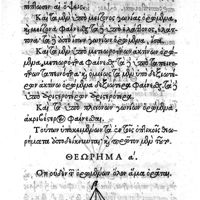 Καὶ τὰ μὲν ὑπὸ μείζονος γωνίας ὁρώμενα,
φαίνεσθαι, τὰ δὲ ὑπὸ ἐλάττονος, ἐλάτ-
Καὶ τὰ μὲν ὑπὸ μετεωροτέρων ἀκτίνων ὁρώμε-
να, μετεωρότερα φαίνεσθαι, τὰ δὲ ὑπὸ ταπεινο-
τέρων ταπεινότερα. καὶ ὁμοίως τὰ μὲν ὑπὸ δεξιωτέ-
ρων ἀκτίνων ὁρώμενα, δεξιώτερα φαίνεσθαι, τὰ
δ' ὑπὸ ἀριστερωτέρων ἀριστερώτερα.
Καὶ τὰ ὑπὸ πλειόνων γωνιῶν ὁρώμενα,
ἀκριβέστερον φαίνεσθαι.
Τούτων ὑποκειμένων τὰ θεω-
ρήματα καὶ πρῶτον μὲν
ΘΕΩΡΗΜΑ α.
Ὅτι οὐδὲν τῶν ὁρωμένων ὅλον ἅμα ὁρᾶται.